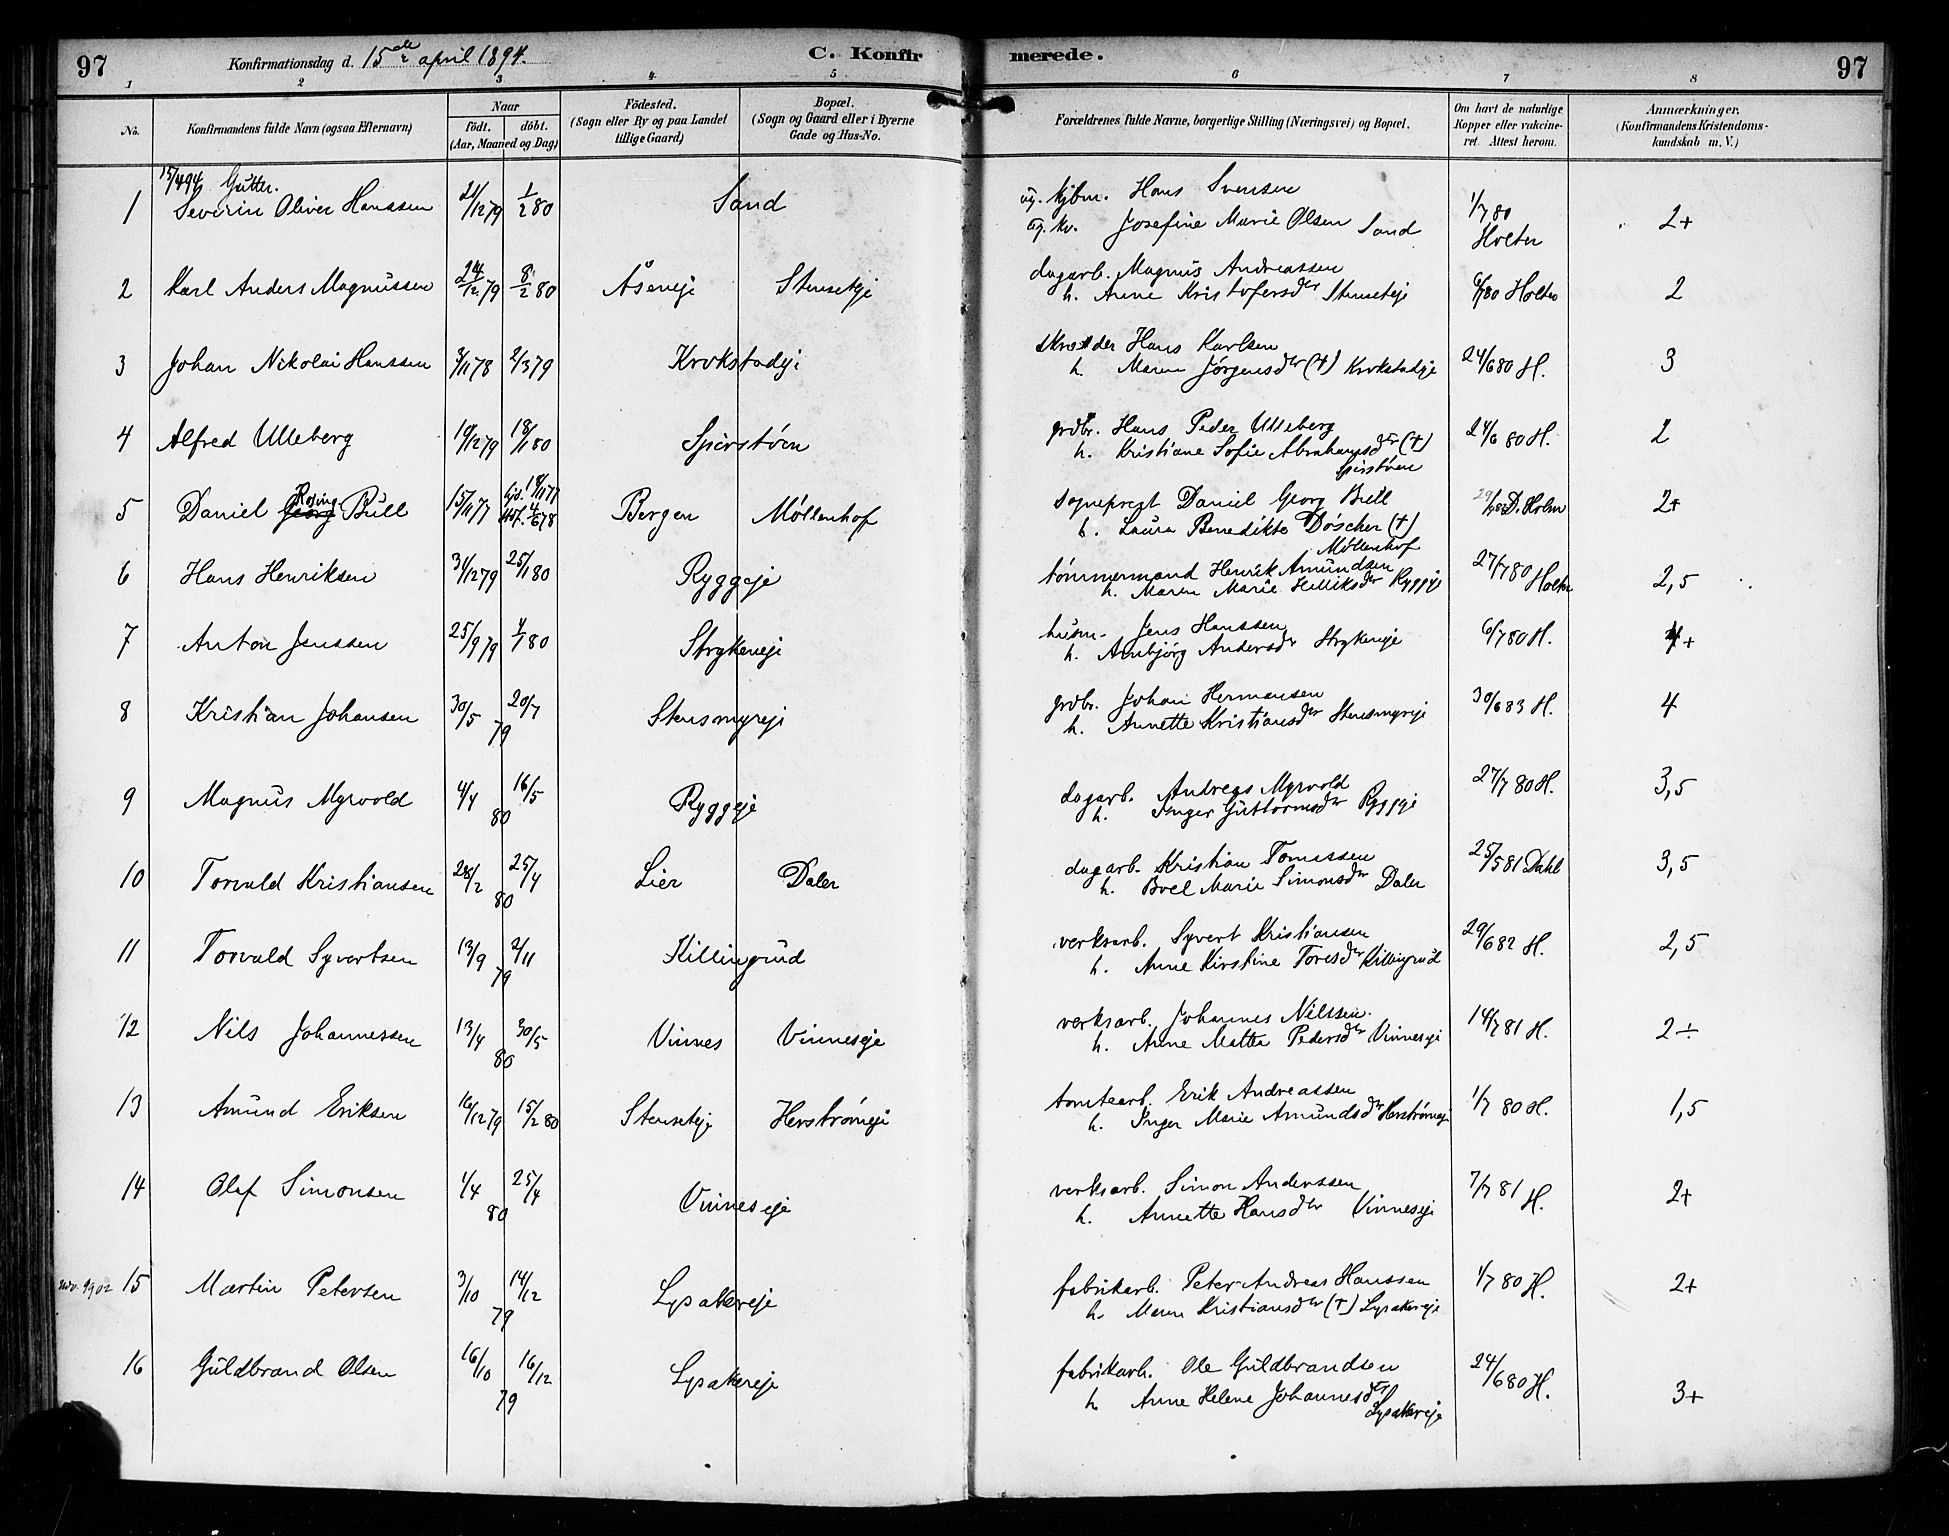 97 Konfirmationsdag d. 15de april 1894. C. Konfirmerede. 97
1 2 3 4 5 6 7 8
No. Konfirmandens fulde Navn (ogsaa Efternavn) Naar födt. döbt. (Aar, Maaned og Dag) Födested. (Sogn eller By og paa Landet tillige Gaard) Bopæl. (Sogn og Gaard eller i Byerne Gade og Hus-No. Forældrenes fulde Navne, borgerlige Stilling (Næringsvei) og Bopæl. Om havt de naturlige Kopper eller vakcineret. Attest herom. Anmærkninger. (Konfirmandens Kristendomskundskab m. V.)
15/4 94 Gutter.
1 Severin Oliver Hanssen 21/12 79 1/2 80 Sand ug. kjbm. Hans Svensen 1/7 80 Holter 2+
ug. kv. Josefine Marie Olsen Sand
2 Karl Anders Magnussen 24/12 79 8/2 80 Åseneje Stenseteje dagarb. Magnus Andreassen 6/7 80 Holter 2
h. Anne Kristofersdtr Stenseteje
3 Johan Nikolai Hanssen 3/11 78 2/3 79 Krokstadeje skræder Hans Karlsen 24/6 80 H. 3
h. Maren Jørgensdtr (†) Krokstadeje
4 Alfred Ulleberg 19/12 79 18/1 80 Spirstøen grdbr. Hans Peder Ulleberg 24/6 80 H. 2
h. Kristiane Sofie Abrahamsdtr (†)
Spirstøen
5 Daniel Georg Rosing Bull 15/11 77 hjd. 18/11 77 stf. 4/6 78 Bergen Møllenhof sogneprest Daniel Georg Bull D. Holm 2+
h. Laura Benedikte Döscher (†)
Møllenhof
6 Hans Henriksen 31/12 79 25/1 80 Ryggeje tømmermand Henrik Amundsen 27/7 80 Holter 2,5
h. Maren Marie Helliksdtr Ryggeje
7 Anton Jenssen 25/9 79 4/1 80 Strykeneje husm. Jens Hanssen 6/7 80 H. 4+
h. Arnbjørg Andersdtr Strykeneje
8 Kristian Johansen 30/5 20/7 79 Stensmyreje grdbr. Johan Hermansen 30/6 83 H. 4
h. Annette Kristiansdtr Stensmyreje
9 Magnus Myrvold 4/4 16/5 80 Ryggeje dagarb. Andreas Myrvold 27/7 80 H. 3,5
h. Inger Guttormsdtr Ryggeje
10 Torvald Kristiansen 28/2 25/4 80 Lier Daler dagarb. Kristian Tomassen 25/5 81 Dahl 3,5
h. Boel Marie Simonsdtr Daler
11 Torvald Syvertsen 13/9 2/11 79 Killingrud verksarb. Syvert Kristiansen 29/6 82 H. 2,5
h. Anne Kirstine Toresdtr Killingrud
12 Nils Johannessen 13/4 30/5 80 Vinnes Vinneseje verksarb. Johannes Nilssen. 14/7 81 H. 2÷
h. Anne Mattea Pedersdtr Vinneseje
13 Amund Eriksen 16/12 79 15/2 80 Stenseteje Herstrømeje tomtearb. Erik Andreassen 1/7 80 H. 1,5
h. Inger Marie Amundsdtr Herstrømeje
14 Olaf Simonsen 1/4 25/4 80 Vinneseje verksarb. Simon Anderssen 7/7 81 H. 2+
h. Annette Hansdtr Vinneseje
15 Martin Petersen 3/10 14/12 79 Lysakereje fabrikarb. Peter Andreas Hanssen 1/7 80 H. 2+
h. Maren Kristiansdtr (†) Lysakereje
16 Guldbrand Olsen 16/10 16/12 79 Lysakereje fabrikarb. Ole Guldbrandsen 24/6 80 H. 3+
h. Anne Helene Johannesdtr
Lysakereje